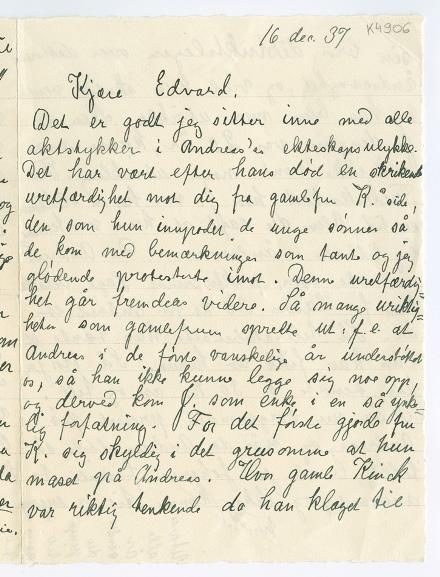 16 dec. 37 K4906
Kjære Edvard.
Det er godt jeg sitter inne med alle
aktstykker i Andreas'es ekteskapsulykke.
Det har vært efter hans död en skrikende
uretfærdighet mot dig fra gamlefru K.s side,
den som hun innpodet de unge sönner så
de kom med bemerkninger som tante og jeg
glödende protesterte imot. Denne uretfærdig-
het går fremdeles videre. Så mange uriktig-
heter som gamlefruen spredte ut: f. e. at
Andreas i de förste vanskelige år understöttet
os, så han ikke kunne legge sig noe opp,
og derved kom J. som enke i en så ynke-
lig forfatning. For det förste gjorde fru
K. sig skyldig i det grusomme at hun
maset på Andreas. Hvor gamle Kinck
var riktig tenkende da han klaget til